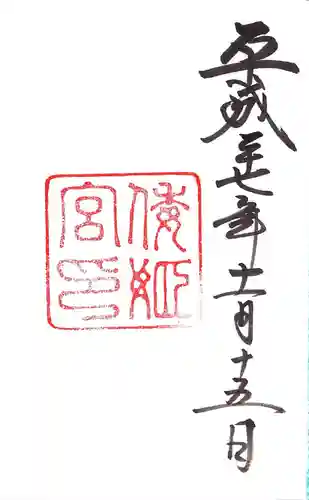 平成二十七年十一月十五日
倭姫
宮印